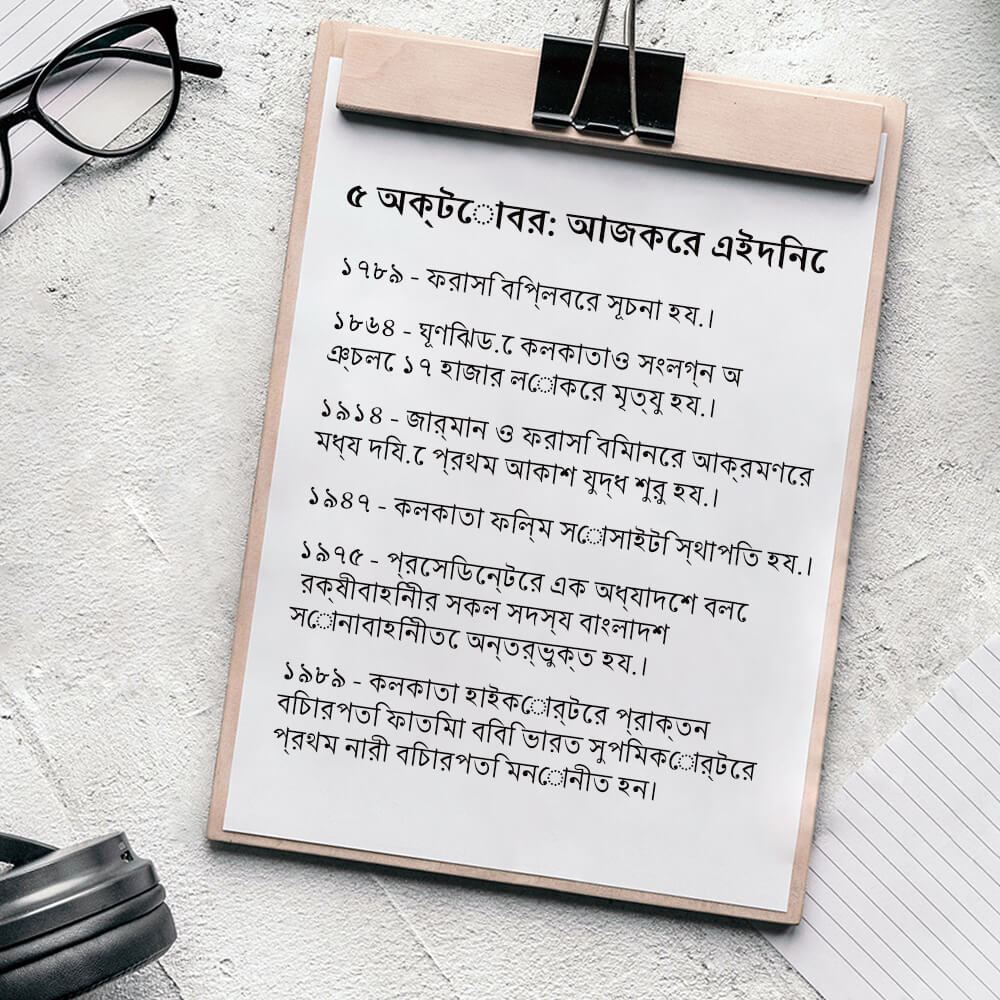 ৫ অক্টোবর: আজকের এইদিনে
১৭৮৯ - ফরাসি বিপ্লবের সূচনা হয়।
১৮৬৪ - ঘূর্ণিঝড়ে কলকাতাও সংলগ্ন অ
ঞ্চলে ১৭ হাজার লোকের মৃত্যু হয়।
১৯১৪ - জার্মান ও ফরাসি বিমানের আক্রমণের
মধ্য দিয়ে প্রথম আকাশ যুদ্ধ শুরু হয়।
১৯৪৭ - কলকাতা ফিল্ম সোসাইটি স্থাপিত হয়।
১৯৭৫ - প্রেসিডেন্টের এক অধ্যাদেশ বলে
রক্ষীবাহিনীর সকল সদস্য বাংলাদেশ
সেনাবাহিনীতে অন্তর্ভুক্ত হয়।
১৯৮৯ - কলকাতা হাইকোর্টের প্রাক্তন
বিচারপতি ফাতিমা বিবি ভারত সুপ্রিমকোর্টের
প্রথম নারী বিচারপতি মনোনীত হন।